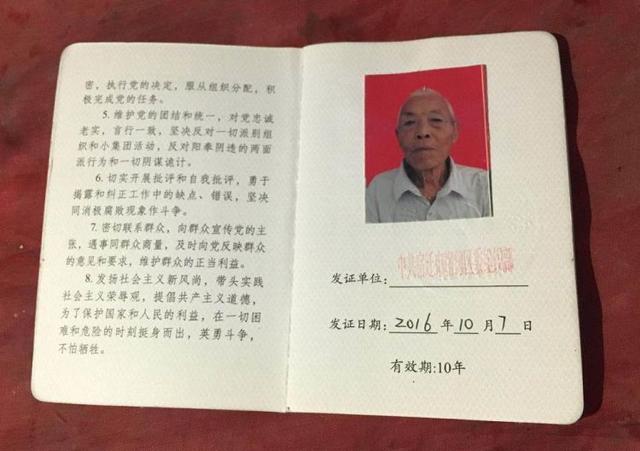 密，执行党的决定，服从组织分配，积
极完成党的任务。
5. 维护党的团结和统一，对党忠诚
老实，言行一致，坚决反对一切派别
组织和小集团活动，反对阳奉阴违的两面
派行为和一切阴谋诡计。
6. 切实开展批评和自我批评，勇于
揭露和纠正工作中的缺点、错误，坚决
同消极腐败现象作斗争。
7. 密切联系群众，向群众宣传党的主
张，遇事同群众商量，及时向党反映群众
的意见和要求，维护群众的正当利益。
8. 发扬社会主义新风尚，带头实践
社会主义荣辱观，提倡共产主义道德，
为了保护国家和人民的利益，在一切困
难和危险的时刻挺身而出，英勇斗争，
不怕牺牲。
发证单位：中共宿迁
发证日期：2016 年 10 月 7 日
有效期:10年